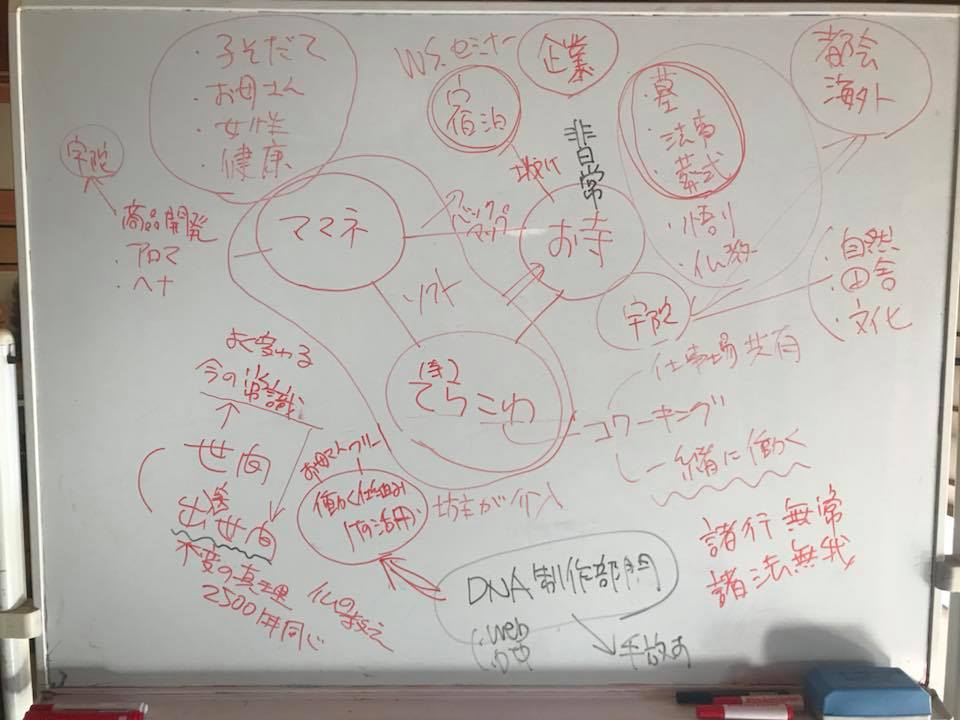 ・子そだて
・お母さん
・女性
・健康
WS.セミナー
企業
宿泊
非日常
・墓
・法事
・葬式
・悟り
・仏教
都会
海外
宇陀
商品開発
・アロマ
・ヘナ
ママネ
お寺
ソフト
宇陀
・自然
・田舎
・文化
(寺)
てらこわ
仕事場共有
コワーキング
一緒に働く
よく変わる
今の常識
世間
出世間
不変の真理
2500年同じ
仏の教え
働く仕組み
坊主が介入
DNA制作部門
・web
→手放す
諸行無常
諸法無我